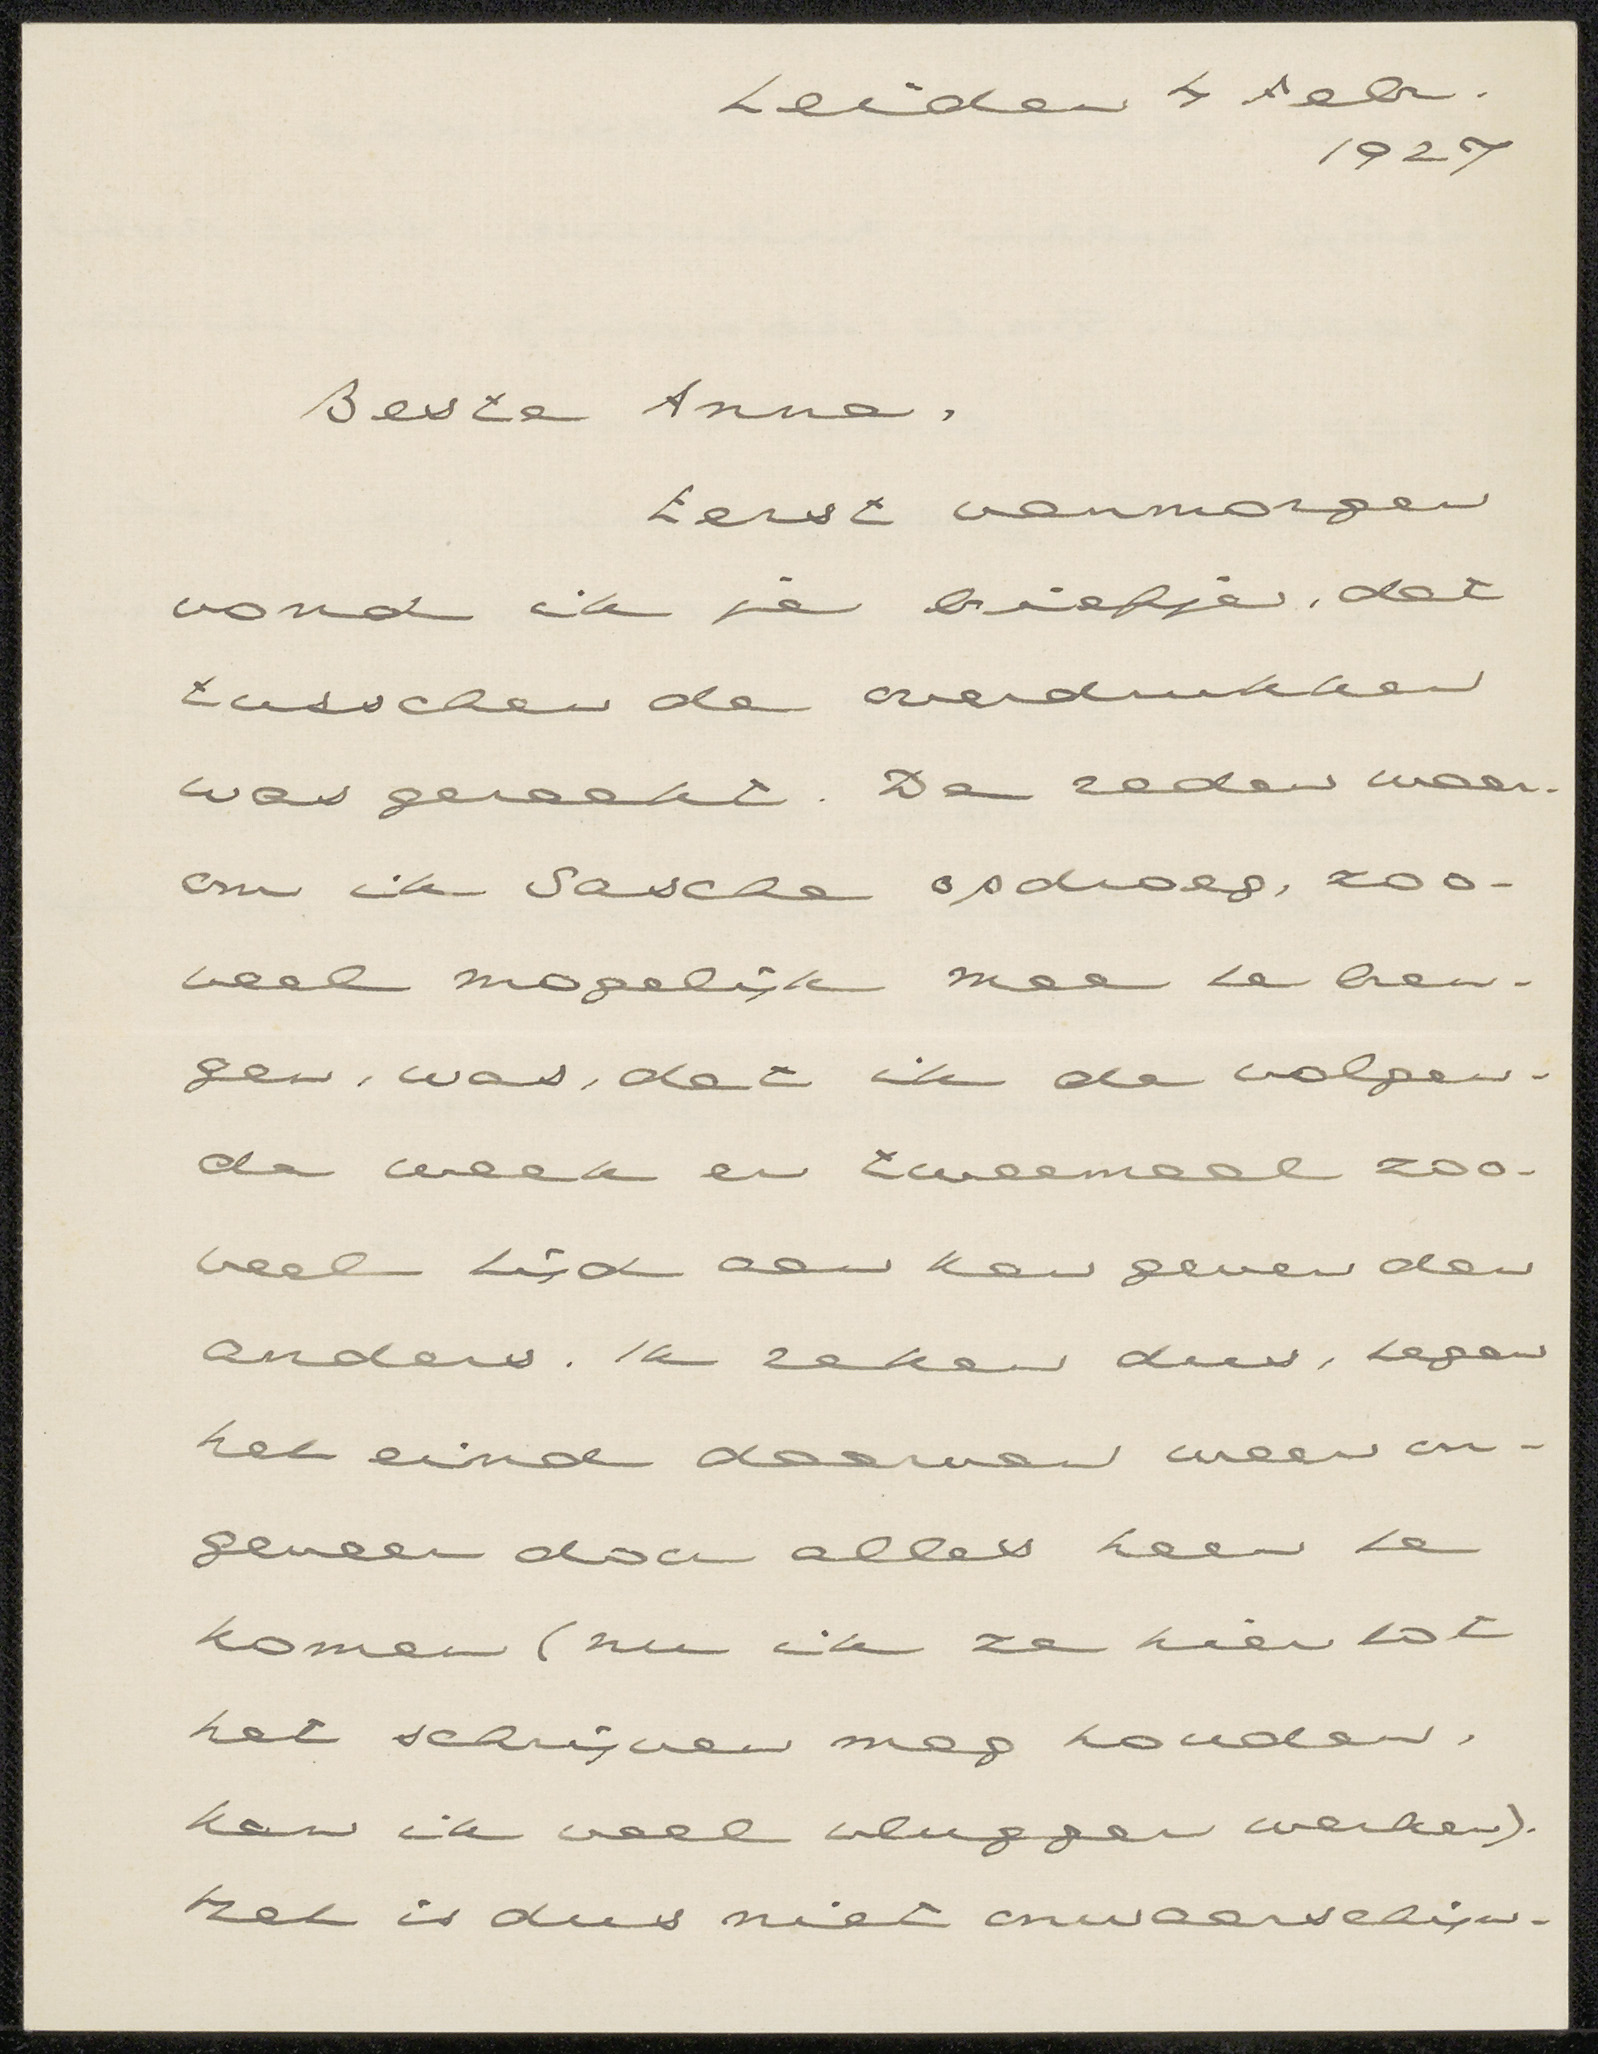 Leiden 4 Febr.
1927
Beste Anna,
Eerst vanmorgen
vond ik je briefje, dat
tusschen de overdrukken
was geraakt. De reden waar-
om ik Sascha opdroeg, zoo-
veel mogelijk mee te bren-
gen, was, dat ik de volgen-
de week er tweemaal zoo-
veel tijd aan kan geven dan
anders. Ik reken dus, tegen
het eind daarvan weer on-
geveer door alles heen te
komen (nu ik ze hier tot
het schrijven mag houden,
kan ik veel vlugger werken).
Het is dus niet onwaarschijn-